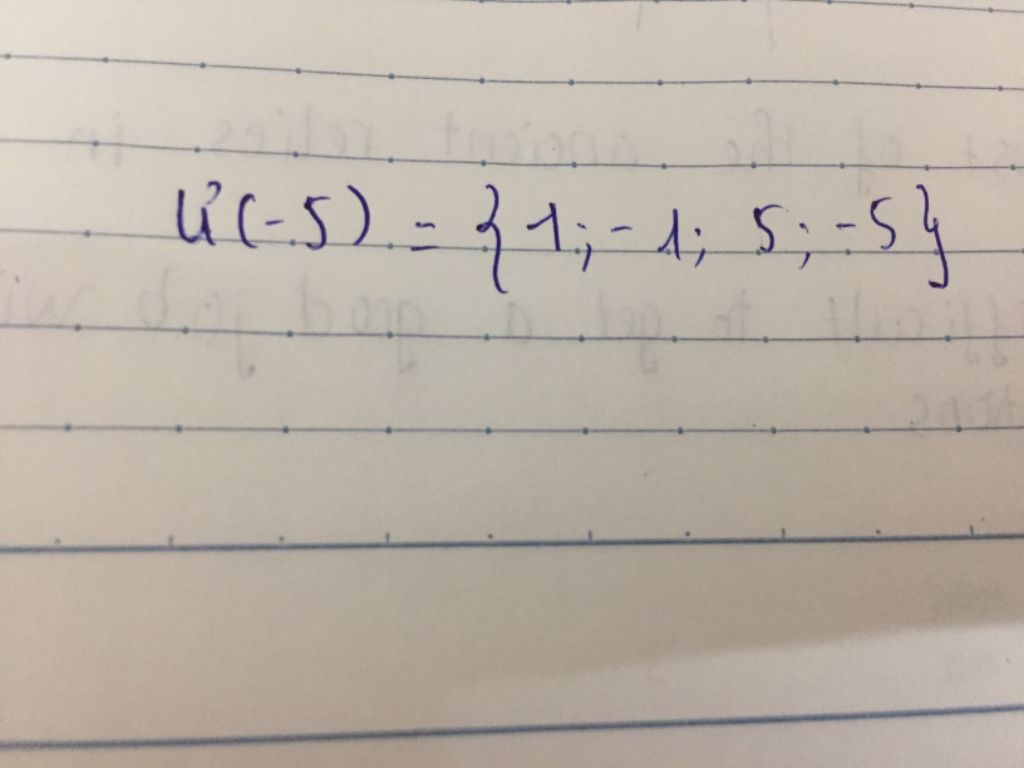 Ư(-5) = {1; -1; 5; -5}